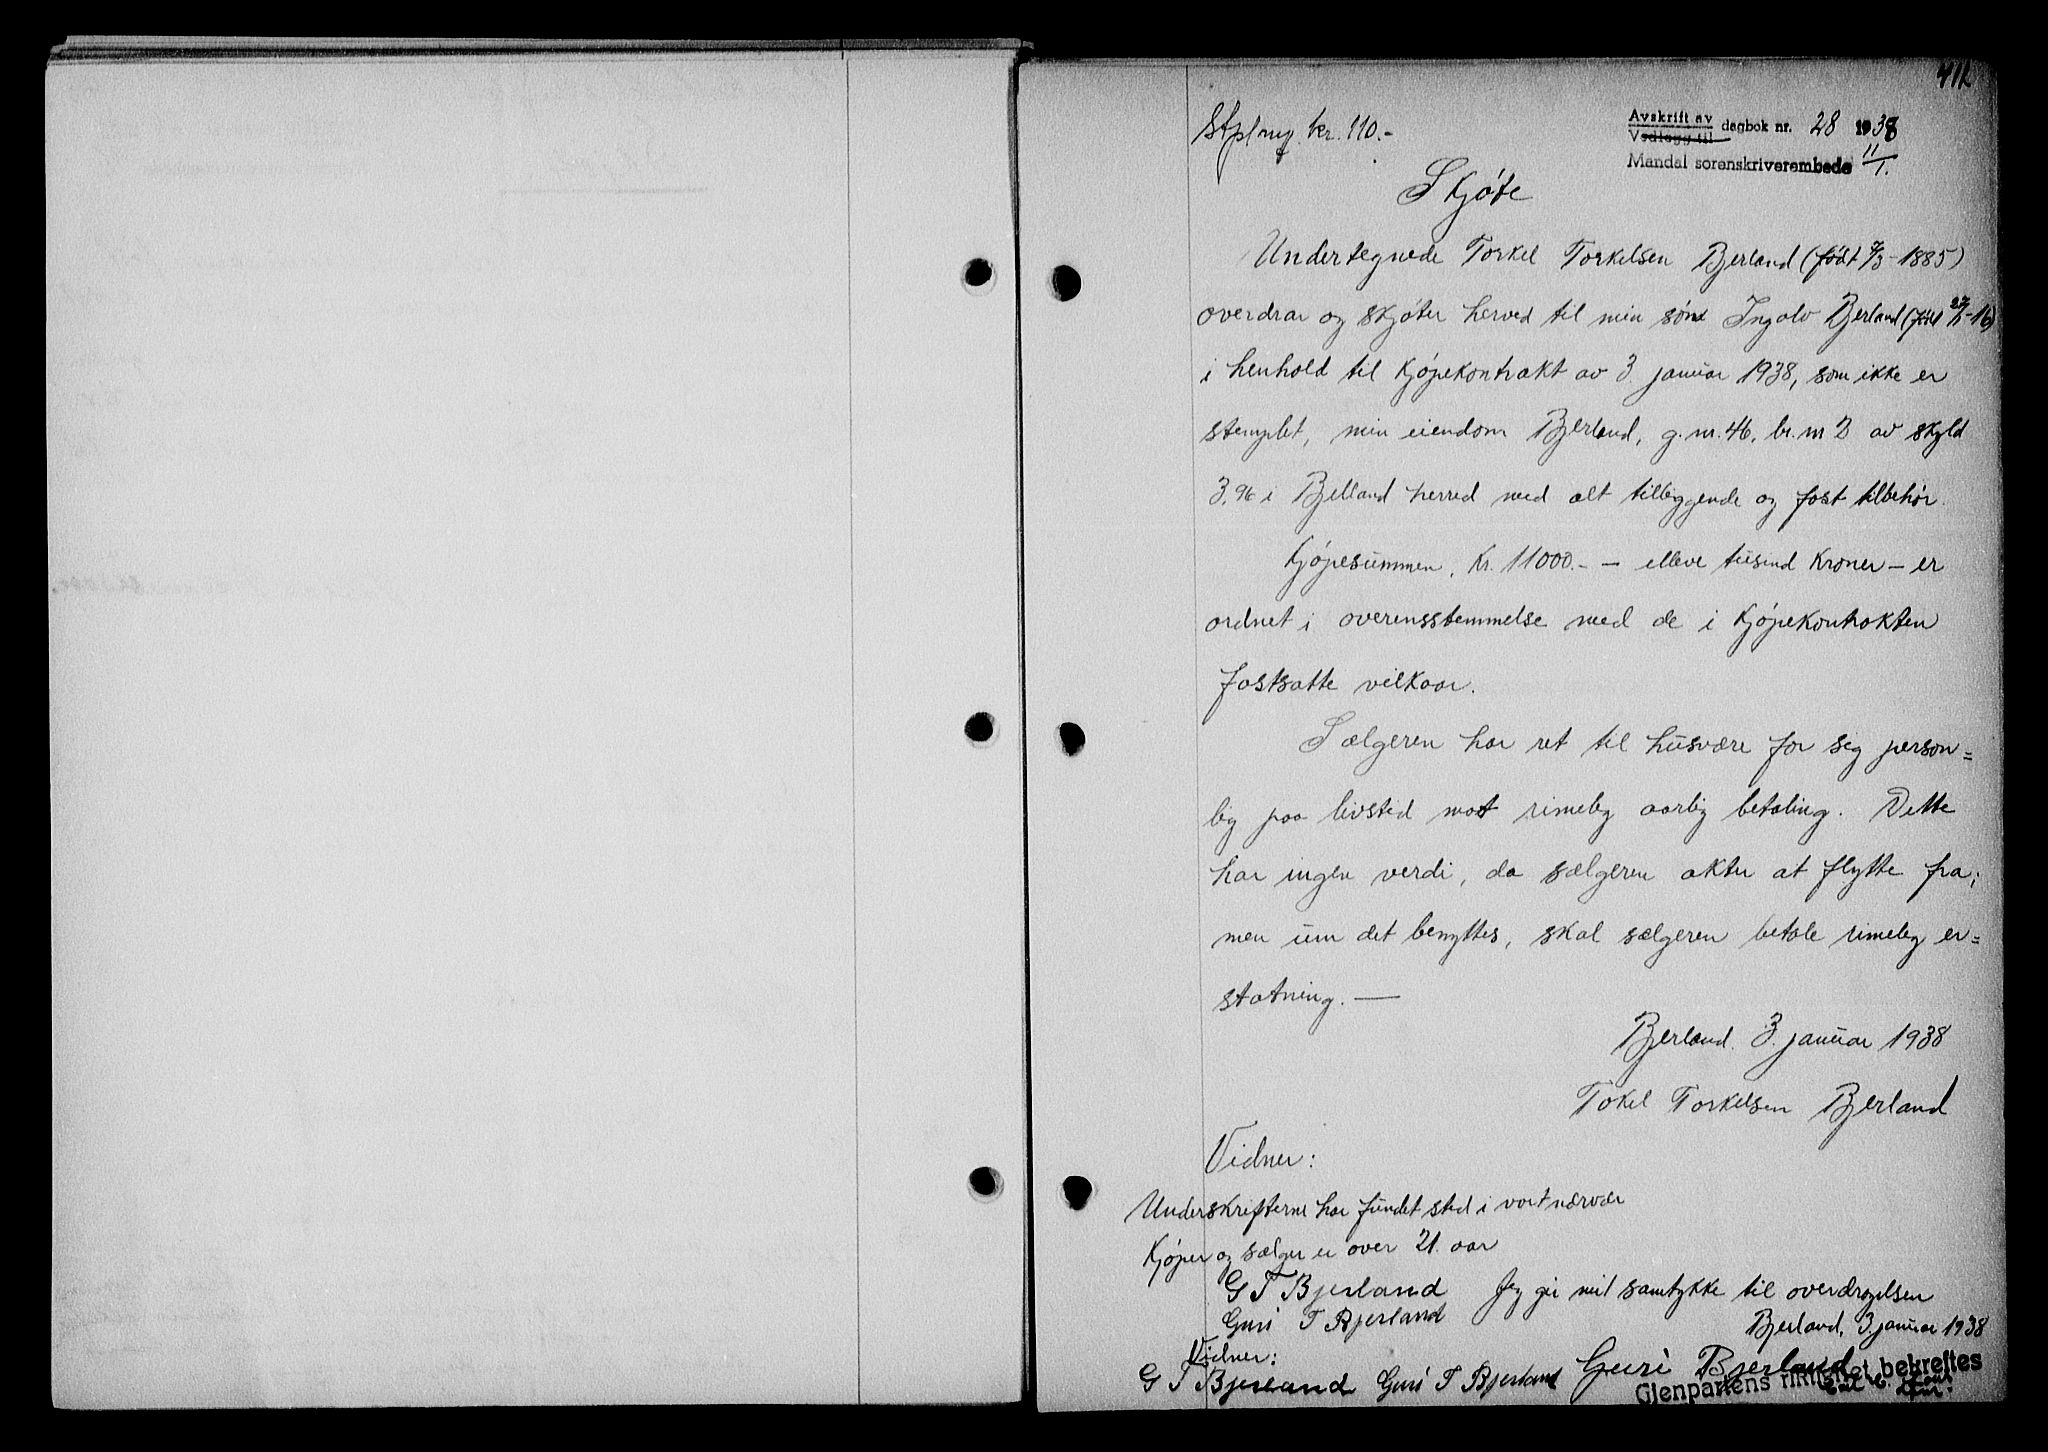 412
Stpl.mrg. kr. 110.-
Avskrift av
Vedlegg til dagbok nr. 28 1938
Mandal sorenskriverembede 11/1.
Skjøte
Undertegnede Torkel Torkelsen Bjerland (født 7/3-1885)
overdrar og skjøter herved til min sønn Ingolv Bjerland (født 27/1-16)
i henhold til kjøpekontrakt av 3. januar 1938, som ikke er
stemplet, min eiendom Bjerland, g.nr. 46, br.nr 2 av skyld
3,96 i Bjelland herred med alt tilliggende og fast tilbehør.
Kjøpesummen, Kr. 11000.- – elleve tusind kroner – er
ordnet i overensstemmelse med de i kjøpekontrakten
fastsatte vilkaar.
Sælgeren har ret til husvære for sig person=
lig paa livstid mot rimelig aarlig betaling. Dette
har ingen verdi, da sælgeren akter at flytte fra;
men um det benyttes, skal sælgeren betale rimelig er=
statning. —
Bjerland. 3. januar 1938
Tokel Torkelsen Bjerland
Vidner:
Underskrifterne har fundet sted i vort nærvær
Kjøper og sælger er over 21. aar
G T Bjerland Jeg gir mit samtykke til overdragelsen
Guri T Bjerland Bjerland, 3. januar 1938
Vidner: Guri Bjerland
G T Bjerland Guri T Bjerland
Gjenpartens riktighet bekreftes